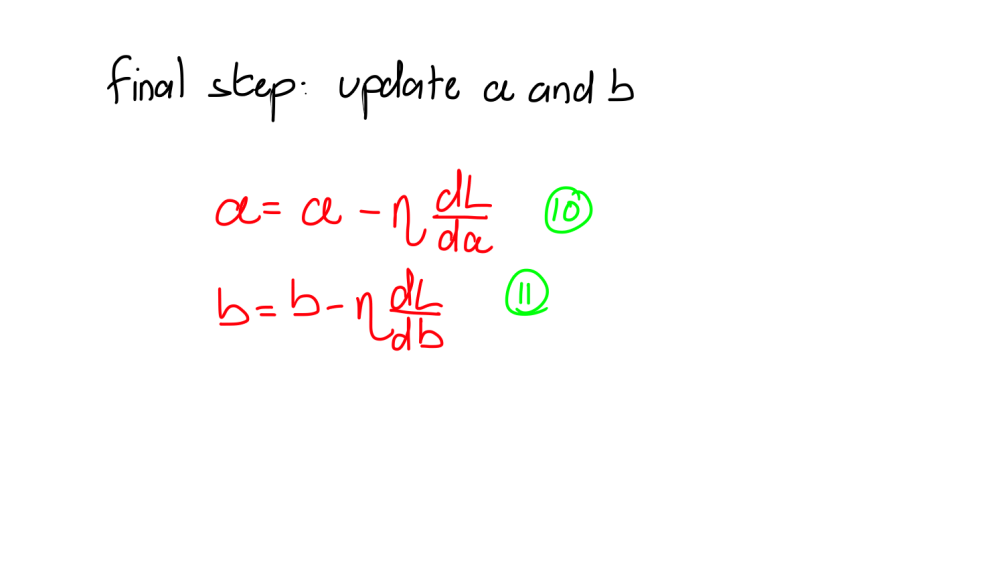 final step: update a and b
a = a - η dL/da ⑩
b = b - η dL/db ⑪